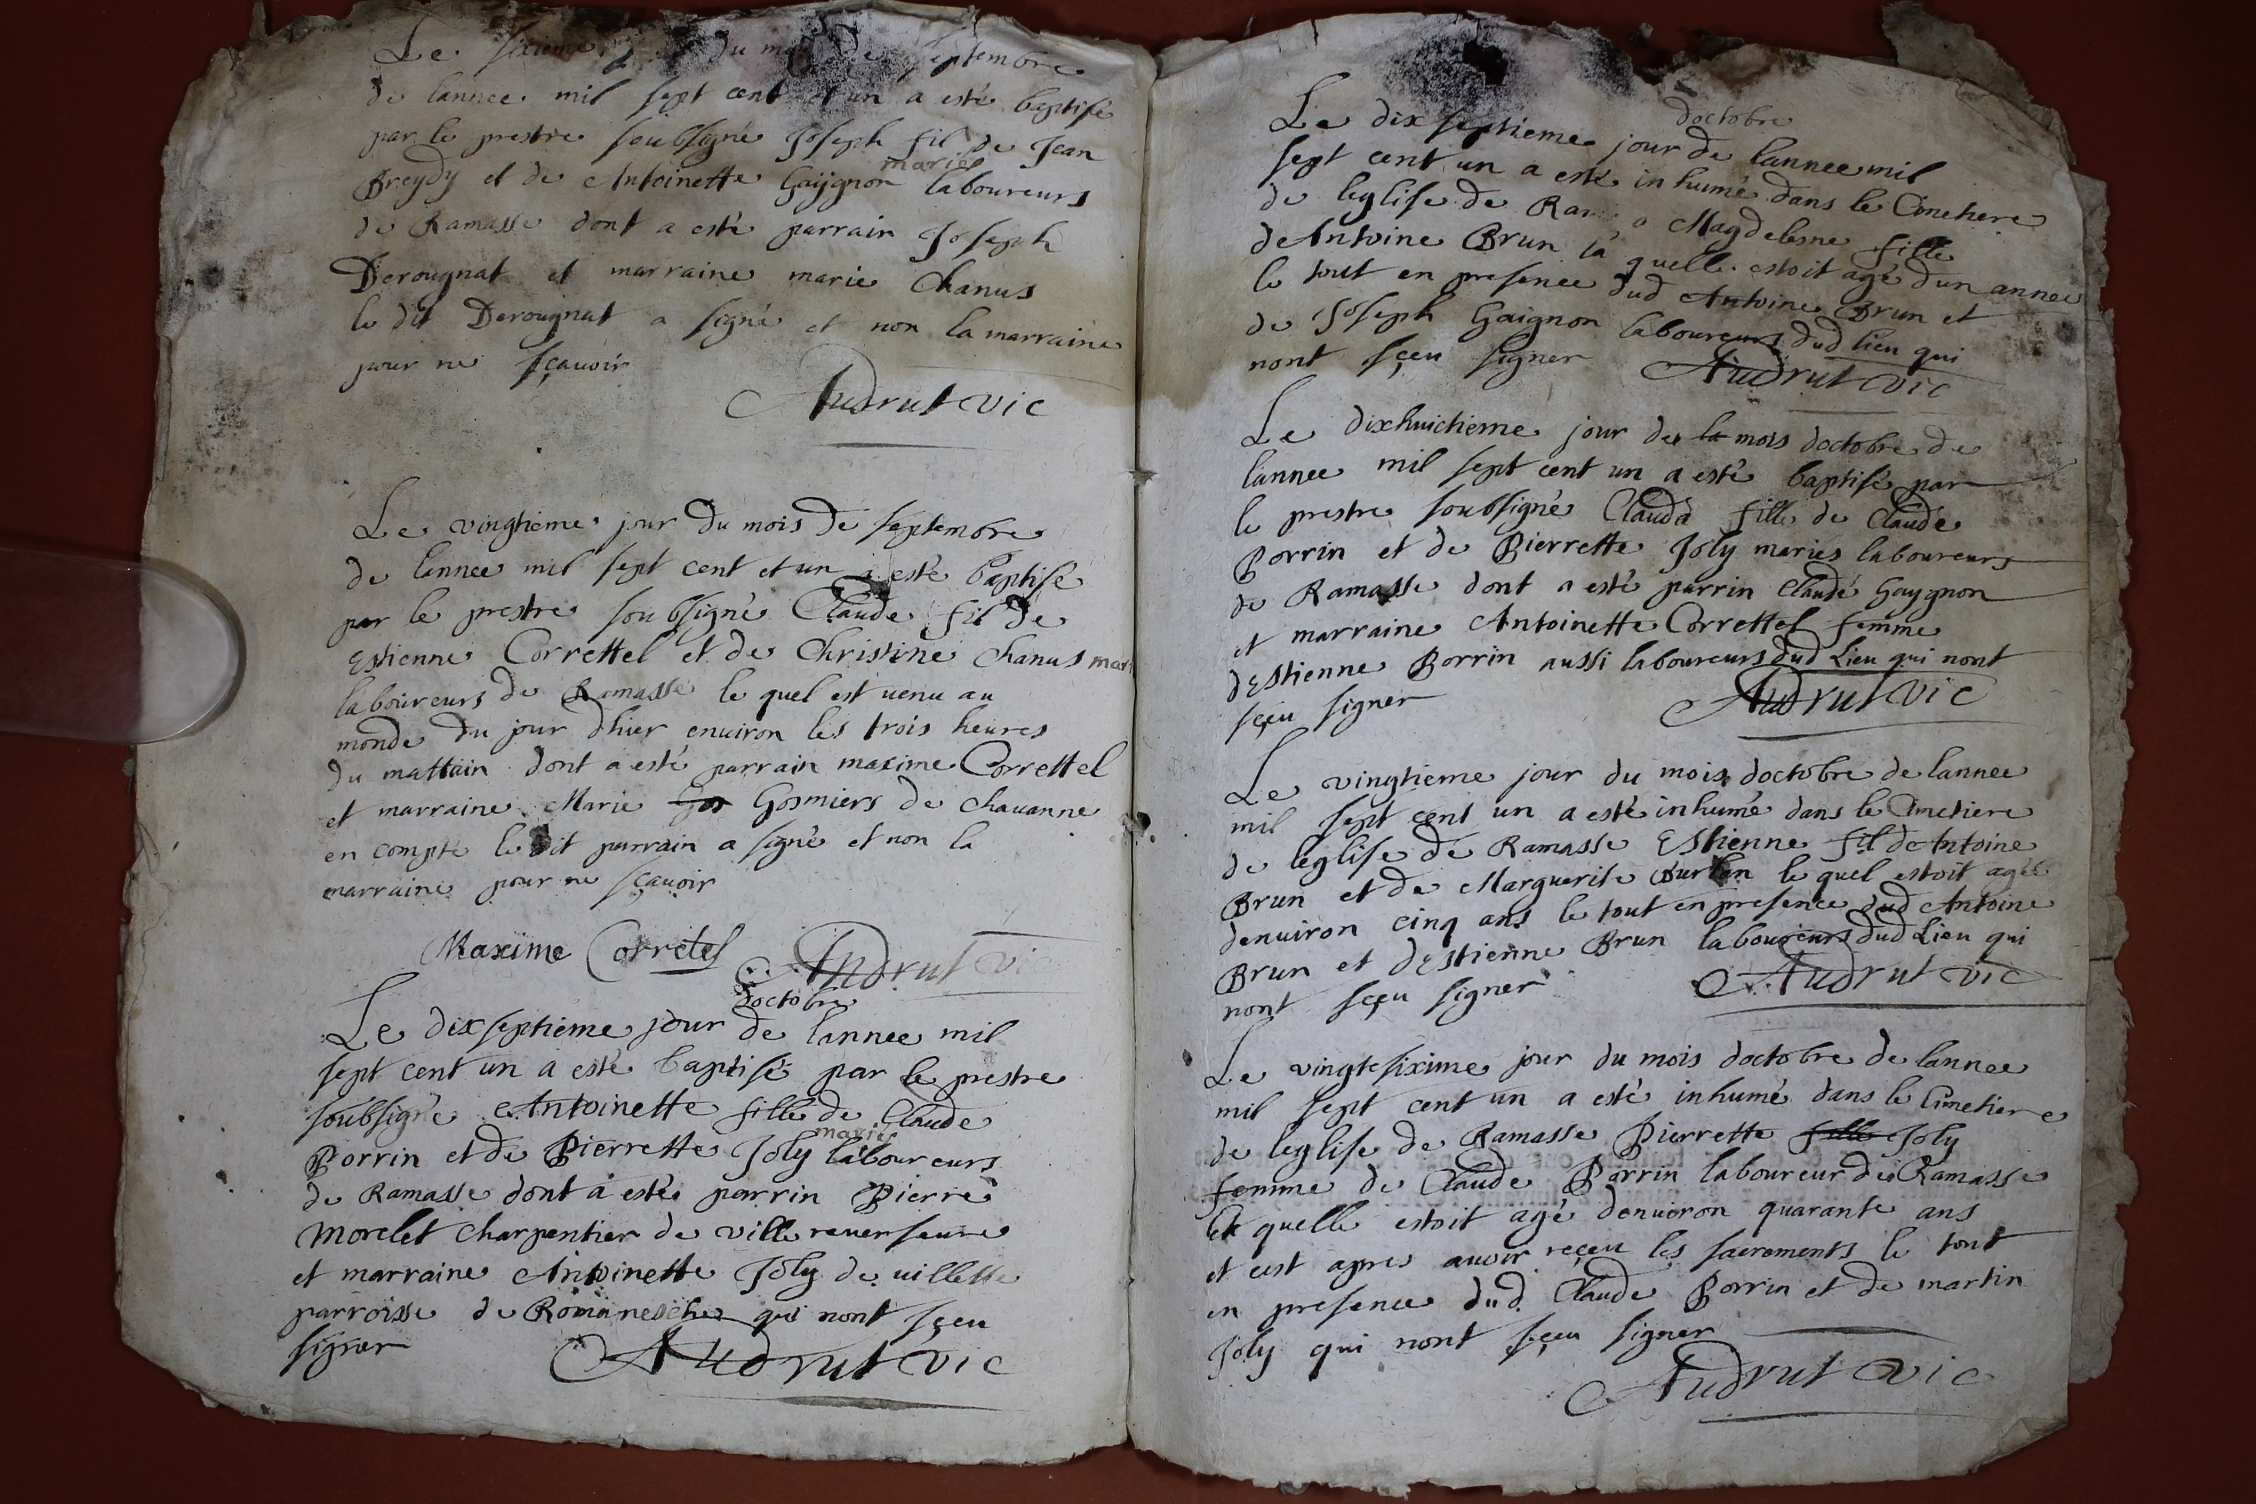 Le sixieme du mois de septembre
de lannee mil sept cent et un a esté baptisé
par le prestre soubsigné Joseph fil de Jean
mariés
Breydy et de Antoinette Gaÿgnon laboureurs
de Ramasse dont a esté parrain Joseph
Derougnat et marraine marie Chanus
le dit Derougnat a signé et non la marraine
pour ne sçavoir
Audrut vic
Le vingtieme jour du mois de septembre
de lannee mil sept cent et un a esté baptisé
par le prestre soubsigné Claude fil de
Estienne Correttel et de Christine Chanus
laboureurs de Ramasse le quel est venu au
monde du jour dhier environ les trois heures
du mattain dont a esté parrain maxime Correttel
et marraine Marie Gos Gosmiers de chavanne
en compte le dit parrain a signé et non la
marraine pour ne sçavoir
Maxime Corretel Audrut vic
doctobre
Le dixseptieme jour de lannee mil
sept cent un a esté baptisé par le prestre
soubsigné Antoinette fille de Claude
mariés
Porrin et de Pierrette Joly laboureurs
de Ramasse dont a esté parrin Pierre
Morelet charpentier de ville reverseure
et marraine Antoinette Joly de villette
parroisse de Romanesche qui nont sçeu
signer
Audrut vic
doctobre
Le dix septieme jour de lannee mil
sept cent un a esté inhumé dans le Cimetiere
de leglise de Magdelesne fille
de Antoine Brun la quelle estoit agé dun annee
le tout en presence dud Antoine Brun et
de Joseph Gaignon laboureurs dud lieu qui
nont sçeu signer Audrut vic
Le dixhuictieme jour de la mois doctobre de
lannee mil sept cent un a esté baptisé par
le prestre soubsigné Clauda fille de Claude
Porrin et de Pierrette Joly mariés laboureurs
de Ramasse dont a esté parrin Claude Gaygnon
et marraine Antoinette Correttel femme
dEstienne Porrin aussi laboureurs dud Lieu qui nont
sçeu signer Audrut vic
Le vingtieme jour du mois doctobre de lannee
mil sept cent un a esté inhumé dans le Cimetiere
de leglise de Ramasse Estienne fil de Antoine
Brun et de Marguerite le quel estoit agé
denviron cinq ans le tout en presence dud Antoine
Brun et dEstienne Brun laboureurs dud Lieu qui
nont sçeu signer Audrut vic
Le vingtesixime jour du mois doctobre de lannee
mil sept cent un a esté inhumé dans le Cimetiere
de leglise de Ramasse Pierrette fille Joly
femme de Claude Porrin laboureur de Ramasse
la quelle estoit agé denviron quarante ans
et cest apres avoir reçeu les sacrements le tout
en presence dud Claude Porrin et de martin
Joly qui nont sçeu signer
Audrut vic